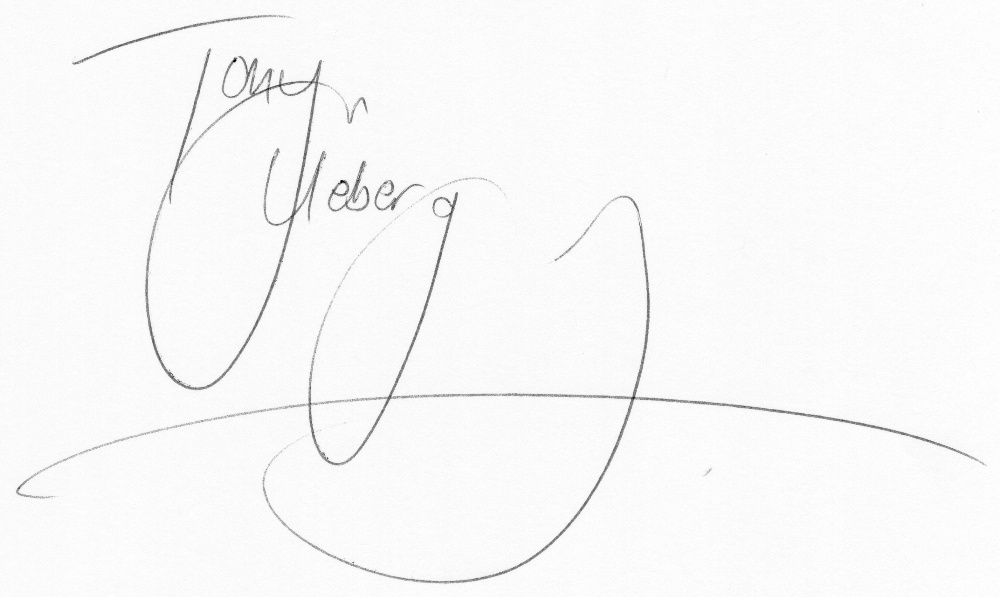 Tony
Uleberg